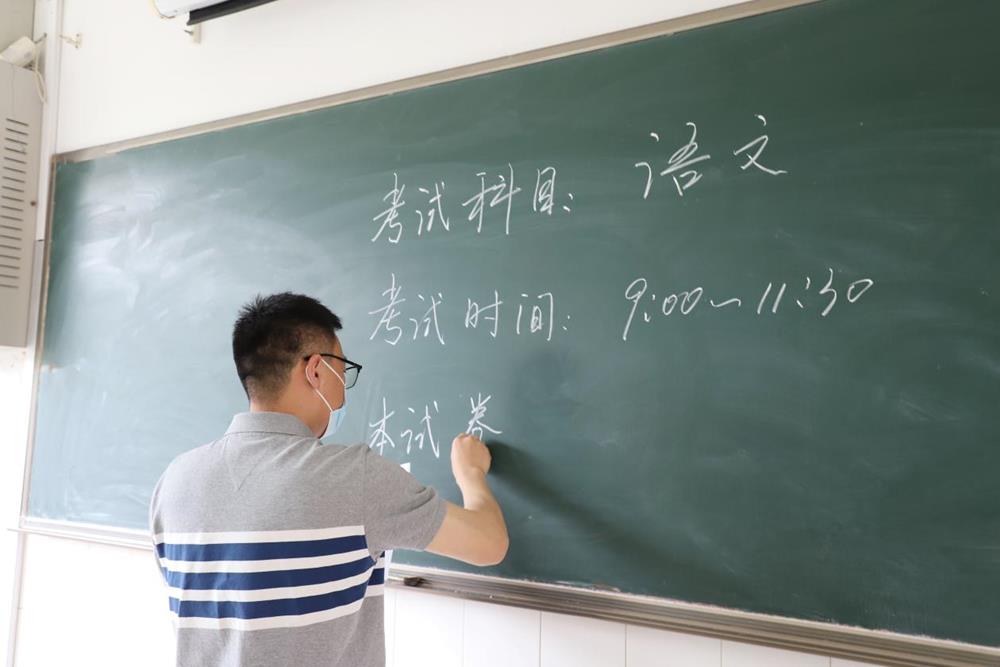 考试科目： 语文
考试时间： 9:00~11:30
本试卷